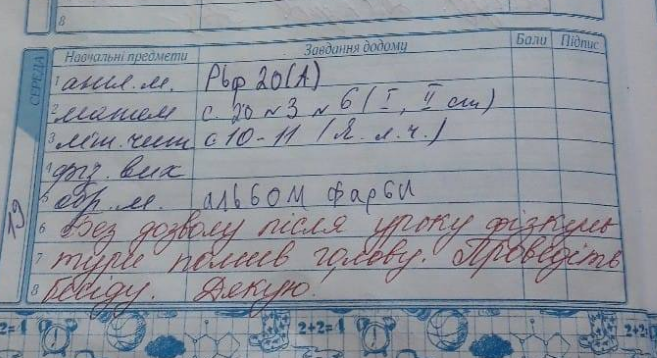 8
Навчальні предмети Завдання додому Бали Підпис
СЕРЕДА
19
1 англ.м. Рвф 20(А)
2 матем с. 20 №3 №6 (I, II ст)
3 літ.чит с 10-11 (В. л. ч.)
4 фіз. вих
5 обр.м. альбом фарби
6 Без дозволу після уроку фізкуль
7 тури помив голову. Проведіть
8 бесіду. Дякую!
2=4 2+2=4 2+2